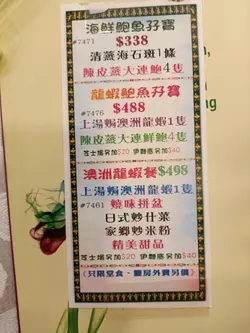 海鮮鮑魚孖寶
#7471 $338
清蒸海石斑1條
陳皮蒸大連鮑4隻
龍蝦鮑魚孖寶
$488
#7476
上湯焗澳洲龍蝦1隻
陳皮蒸大連鮮鮑4隻
芝士焗另加$20 伊麵底另加$40
澳洲龍蝦餐$498
上湯焗澳洲龍蝦1隻
#7461 燒味拼盆
日式炒什菜
家鄉炒米粉
精美甜品
芝士焗另加$20 伊麵底另加$40
(只限堂食、廳房外賣另價)